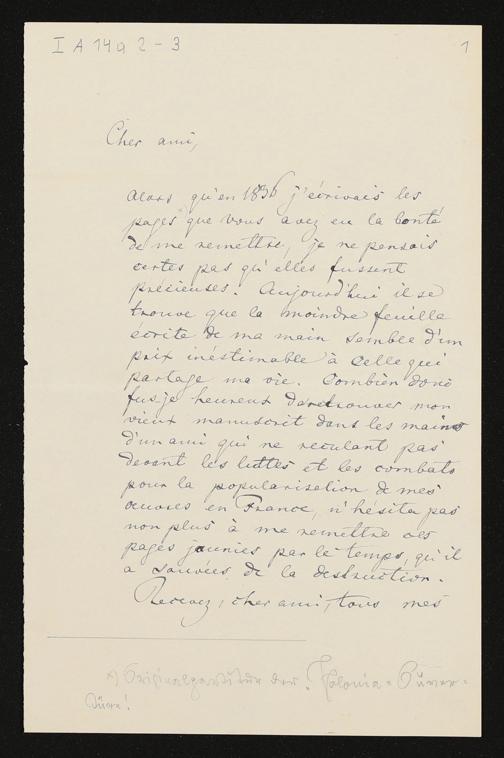 I A 149 2-3
1
Cher ami,
Alors qu'en 1896 j'écrivais les
pages que vous avez eu la bonté
de me remettre, je ne pensais
certes pas qu'elles fussent
précieuses. Aujourd'hui il se
trouve que la moindre feuille
écrite de ma main semble d'un
prix inéstimable à celle qui
partage ma vie. Combien donc
fus-je heureux de retrouver mon
vieux manuscrit dans les mains
d'un ami qui ne reculant pas
devant les luttes et les combats
pour la popularisation de mes
œuvres en France, n'hésita pas
non plus à me remettre ces
pages jaunies par le temps, qu'il
a sauvées de la destruction.
Recevez, cher ami, tous mes
Originalpartitur der Polonia-Ouver-
türe!